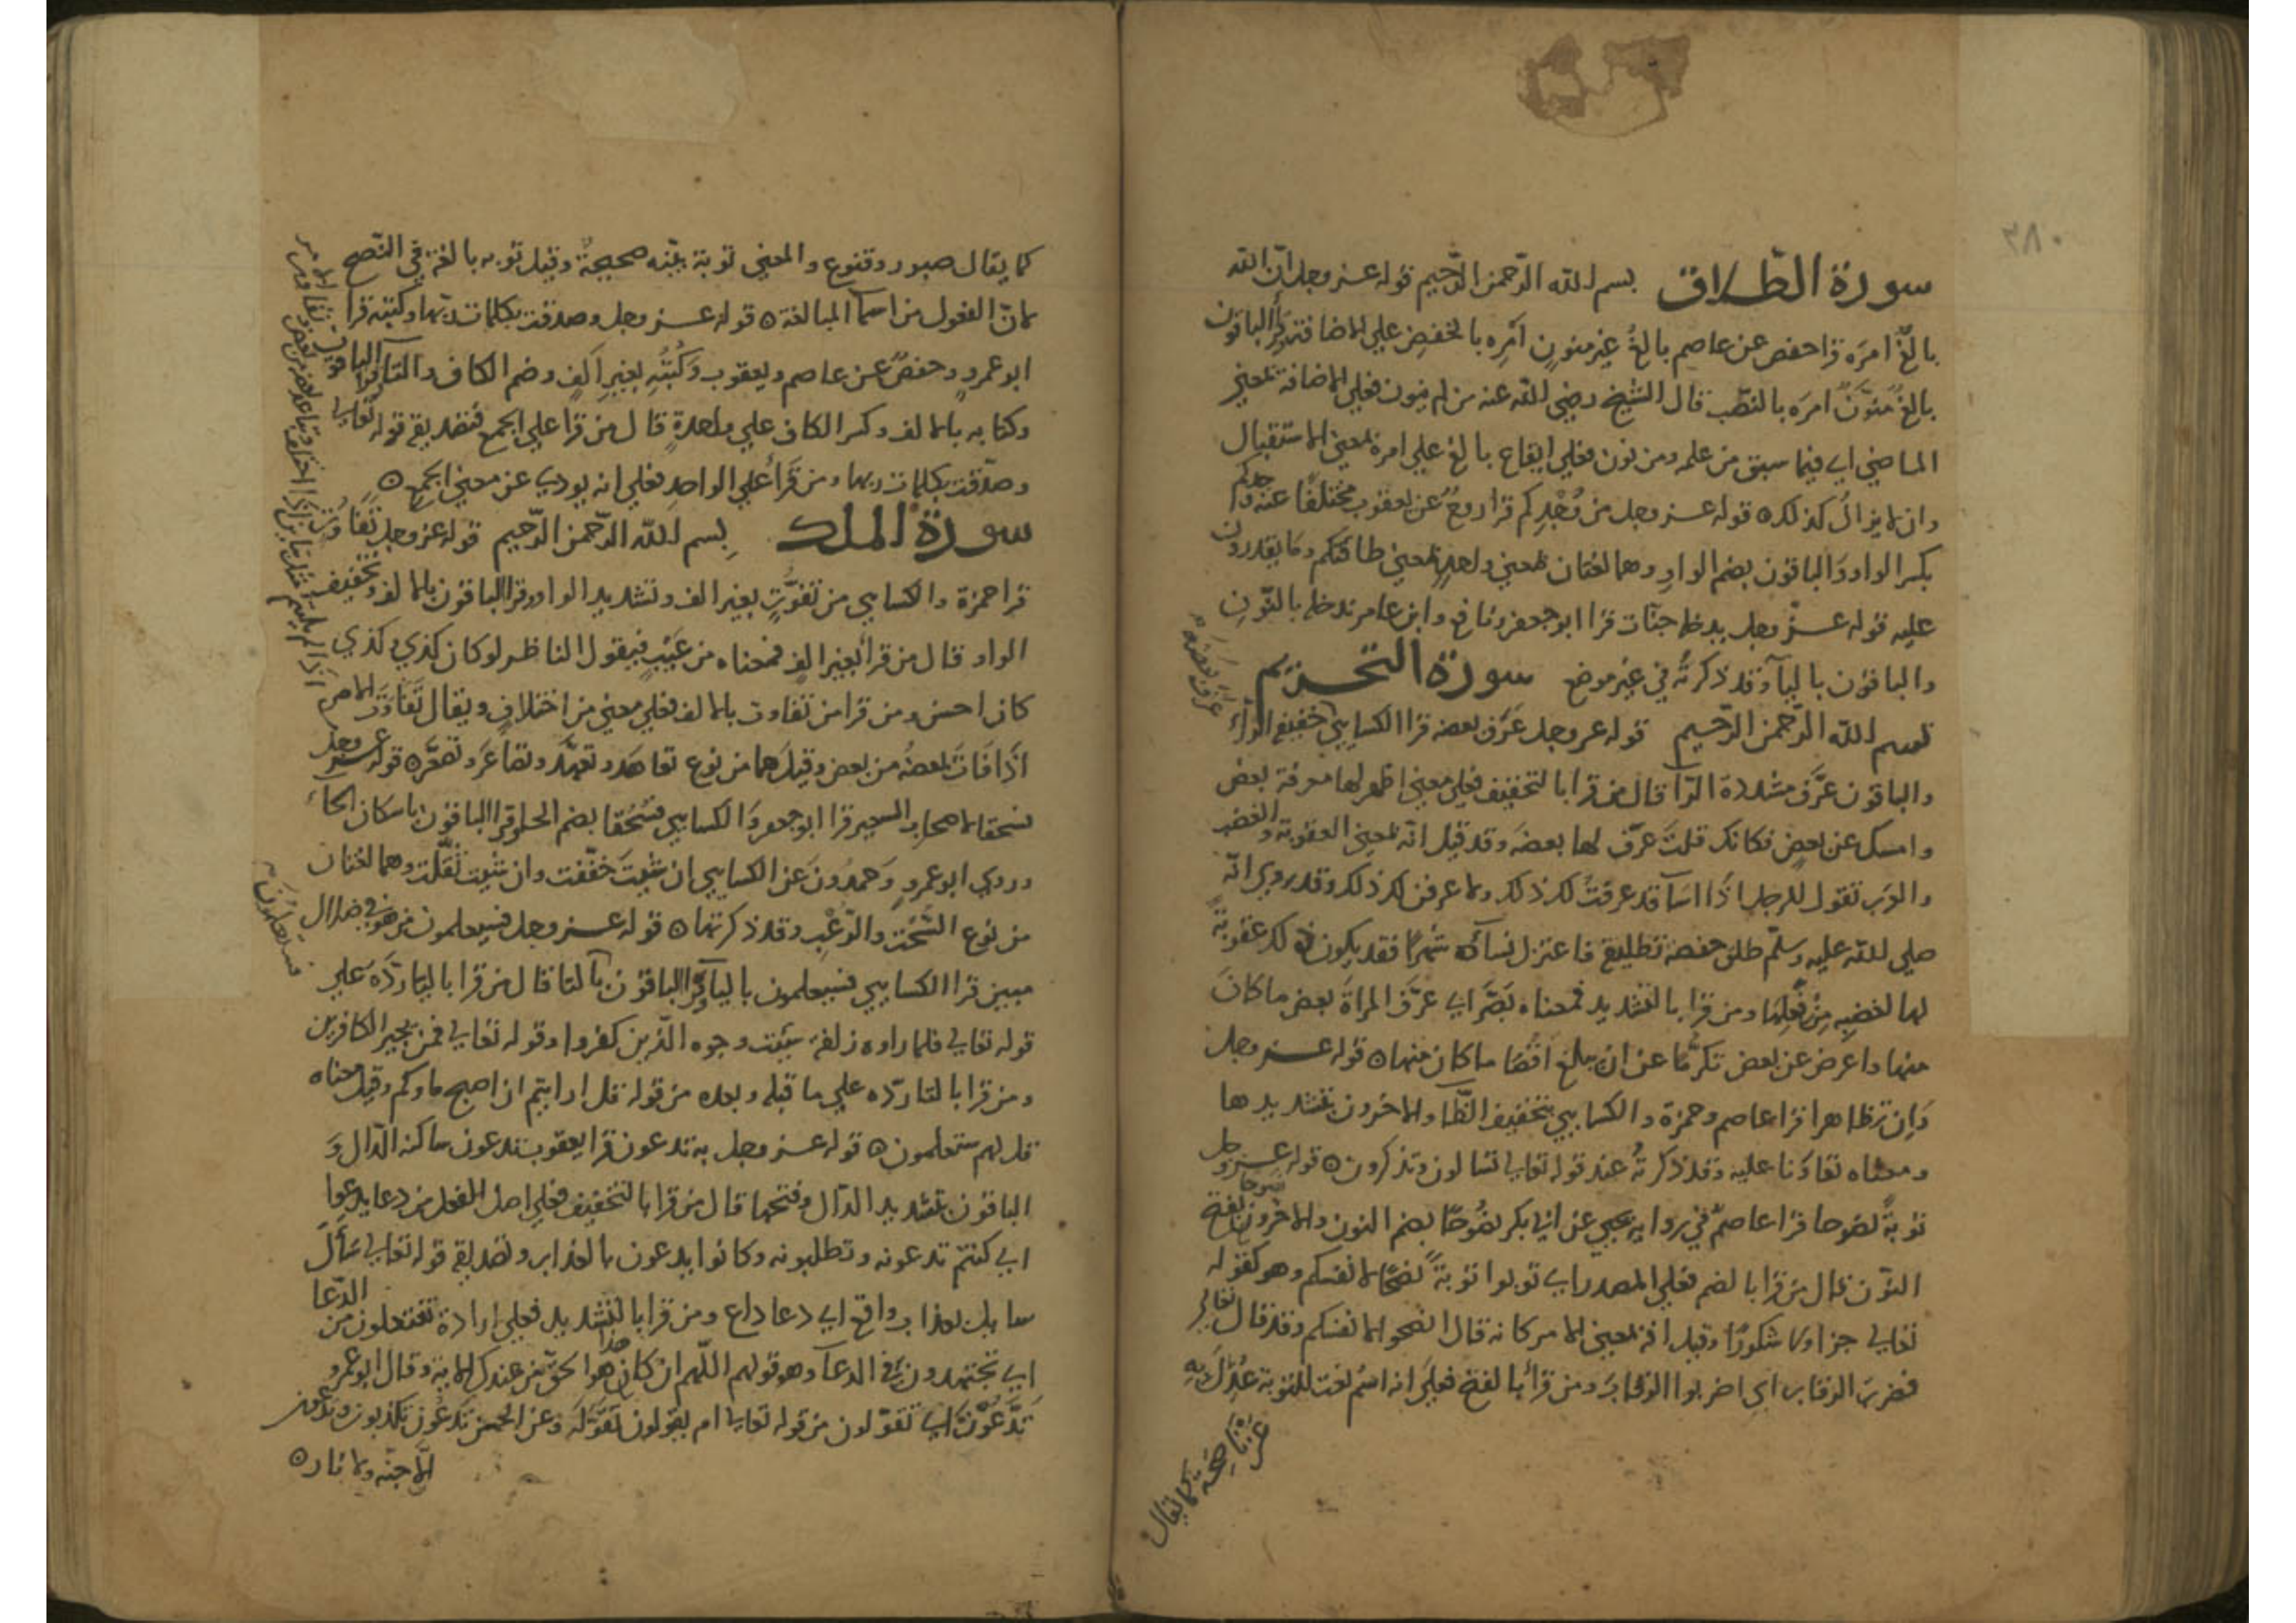 ٢٨٠
سورة الطلاق بسم الله الرّحمن الرّحيم قوله عز وجل انّ الله
بالغٌ امرَه قرا حفص عن عاصم بالغُ غير منونٍ امرِه بالخفض علي الاضافة وقرأ الباقون
بالغٌ مُنوّنٌ امرَه بالنصّب قال الشيخ رضي الله عنه من لم ينون فعلي الاضافة بمعني
الماضي اي فيما سبق من علمه ومن نون فعلي ايقاع بالغ علي امره بمعني الاستقبال
وان لا يزال كذلك ه قوله عز وجل من وُجْدِكم قرا روحٌ عن يعقوب مختلفًا عنه وِجدكم
بكسر الواو والباقون بضم الواو وهما لغتان بمعني واحدٍ بمعني طاقتكم وما يقدرون
عليه قوله عزّ وجل يدخله جنّات قرا ابو جعفر ونافع وابن عامر ندخله بالنّونِ
والباقون باليآ وقد ذكرته في غير موضع سورة التحريم
بسم الله الرّحمن الرّحيم قوله عز وجل عَرَّف بعضه قرا الكسايي خفيفة الرآء
عَرَف بَعضَهُ
والباقون عرَّف مشددة الرّآ قال من قرا بالتخفيف فعلي معني اظهر لها معرفة بعض
وامسك عن بعضٍ فكانك قلتَ عرّف لها بعضه وقد قيل انّه بمعني العقوبة والغضب
والعرب تقول للرجل اذا اسآ قد عرفتُ لك ذلك ولاعرفن لك ذلك وقد روي انّه
صلي الله عليه وسلّم طلق حفصة تطليقة فاعتزل نسآئه شهرًا فقد يكون ذلك عقوبة
لها لغضبه مِن فعلِها ومن قرا بالتشديد فمعناه بَصَّرَ اي عرَّف المراةَ بعض ما كانَ
منها واعرض عن بعض تكرّمًا عن ان يبلغ اقصَا ما كان منها ه قوله عز وجل
وَاِن تظاهرا قرا عاصم وحمزة والكسايي بتخفيف الظّا والاخرون بتشديدها
ومعناه تعاوَنا عليه وقد ذكرتُه عند قوله تعالي تسالون وتذكرون ه قوله عز وجل
توبةً نصوحا قرا عاصمٌ في رواية يحيي عن ابي بكر نصُوحًا بضم النون والاخرون نَصوحا بفتح
النوّن قال من قرا بالضم فعلي المصدر اي توبوا توبةً نصحًا لانفسكم وهو كقوله
تعالي جزا ولا شكورًا وقيل انه بمعني الامر كانه قال انصحوا لانفسكم وقد قال تعالي
فضرب الرقاب اي اضربوا الرقاب ومن قرأ بالفتح فعلي انه اسم نعت للتوبة عُدِلَ بِهِ
عن ناصِحَةٍ كما يقال
كما يقال صبور وقنوع والمعني توبة بيّنه صحيحةٌ وقيل توبه بالغة في النّصح
لانّ الفعول من اسمآ المبالغة ه قوله عز وجل وصدقت بكلمات ربّها وكتبه قرا
ابو عمروٍ وحفصٌ عن عاصم ويعقوب وَكُتُبِهِ بغيرِ اَلِفٍ وضم الكاف والتآ وقرا الباقون
وكتابه بالالف وكسر الكاف علي واحدةٍ قال من قرا علي الجمع فتصديقه قوله تعالي
وصدّقت بكلمات ربها ومن قَرَأَ علي الواحدِ فعلي انه يودي عن معني الجمع ه
سورة الملك بسم الله الرّحمن الرّحيم قوله عز وجل تَفَاوُت
قرا حمزة والكسايي من تفوُّتٍ بغير الف وتشديد الواو وقرا الباقون بالالف وتخفيف
الواو قال من قرأ بغير الفٍ فمعناه من عَيْبٍ فيقول الناظر لو كان كذي وكذي
كان احسن ومن قرا من تفاوت بالالف فعلي معني من اختلافٍ ويقال تَفَاوَتَ الامر
اذا فاتَ بعضُه من بعض وقيل هما من نوع تعاهَد وتعهَّد وتصاعَرَ وتصعَّر ه قوله عز وجل
فسحقا لاصحاب السعير قرا ابو جعفر والكسايي فسُحُقا بضم الحا وقرا الباقون باسكان الحآء
وروي ابو عمروٍ وَحمدُون عن الكسايي ان شيتَ خفّفت وان شيت ثقّلت وهما لغتان
من نوع السُّحت والرّعْب وقد ذكرتها ه قوله عز وجل فسيعلمون من هو في ضلال
فستعلمُونَ
مبين قرا الكسايي فسيعلمون باليآ وقرأ الباقون بالتا قال من قرا باليا ردَّهُ علي
قوله تعالي فلما راوه زلفة سيئت وجوه الّذين كفروا وقوله تعالي فمن يجير الكافرين
ومن قرا بالتا ردّه علي ما قبله وبعده من قوله قل ارايتم ان اصبح ماوكم وقيل معناه
قل لهم ستعلمون ه قوله عز وجل به تدعون قرا يعقوب تدعون ساكنه الدّال وَ
الباقون بتشديد الدّال وفتحها قال من قرا بالتخفيف فعلي اصل الفعل من دعا يدعوا
اي كنتم تدعونه وتطلبونه وكانوا يدعون بالعذاب وتصديقه قوله تعالي سَأَلَ
سايل بعذاب واقع اي دعا داع ومن قرا بالتشديد فعلي ارادة تفتعلون من الدّعا
اي تجتهدون في الدعآ وهو قولهم اللّهم ان كان هذا هوا لحق من عندك الاية وقال ابو عمرو
تَدَّعُونَ اي تتقولون من قوله تعالي ام يقولون تَقَوَّلَه وعن الحسن تدعون تكذبون
الّا جنّه ولا نار ه